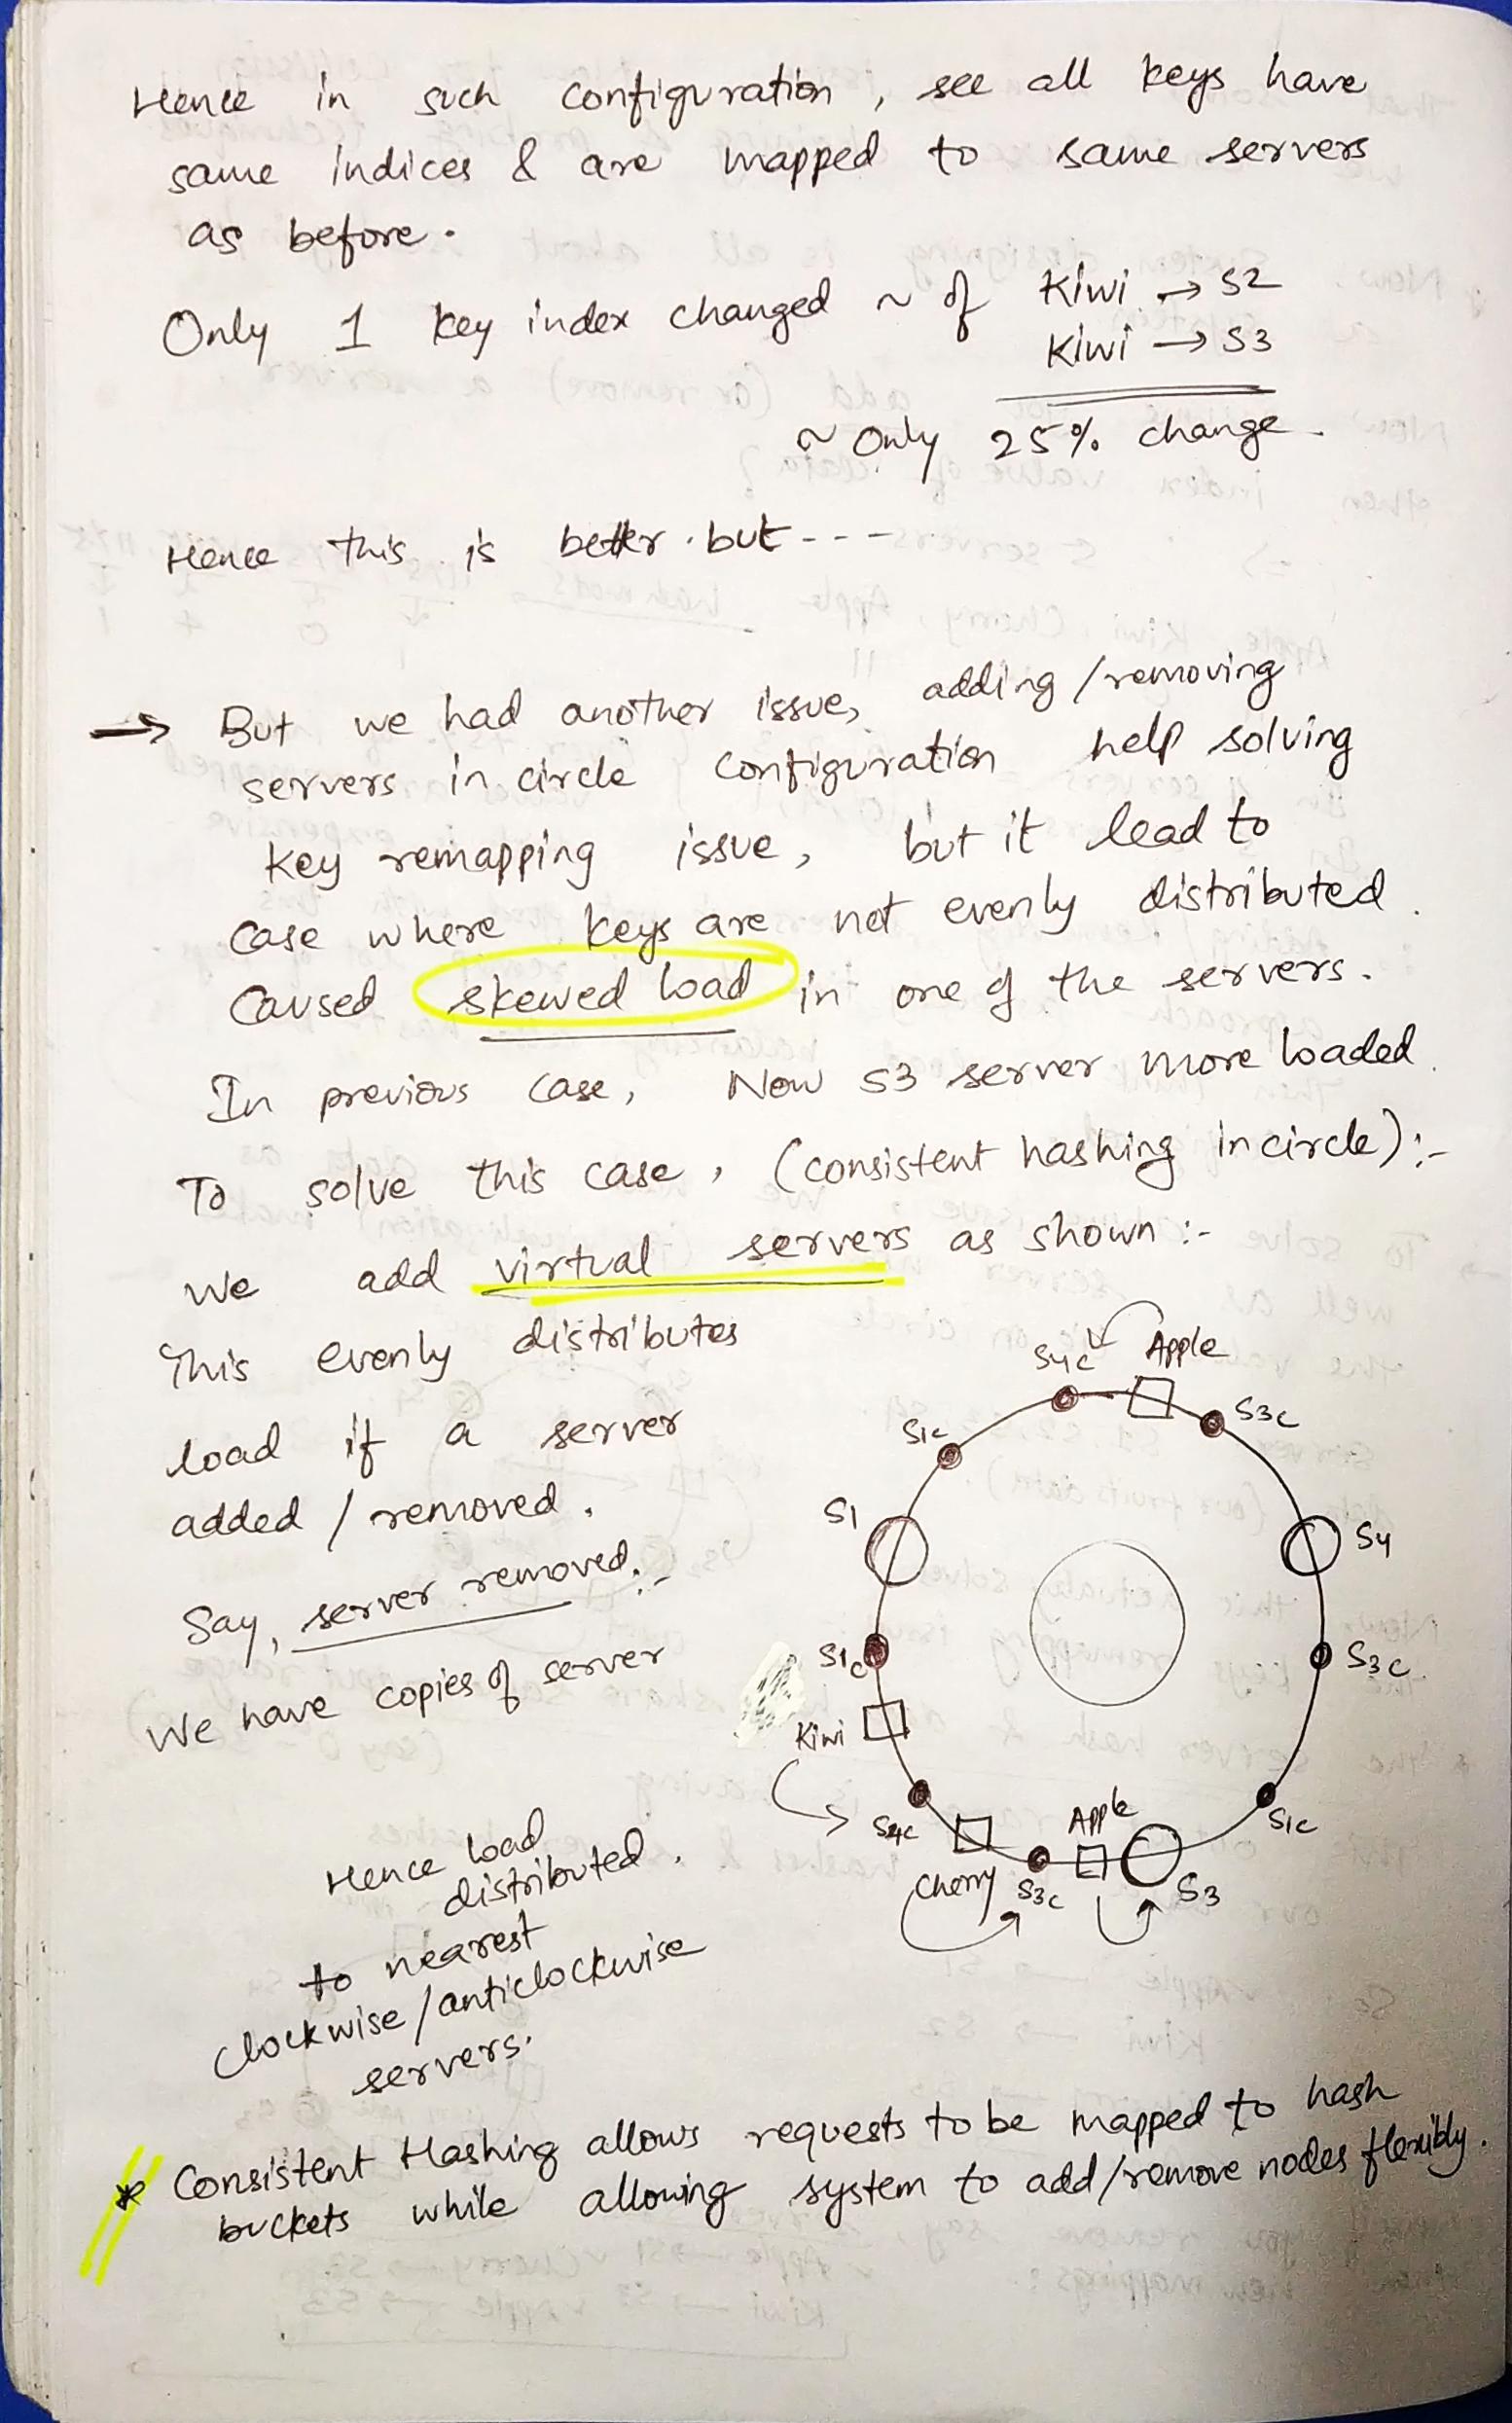 Hence in such configuration, see all keys have
same indices & are mapped to same servers
as before.
Only 1 key index changed ~ of Kiwi → S2
Kiwi → S3
~ Only 25% change.
Hence this is better but - - -
→ But we had another issue, adding/removing
servers in circle configuration help solving
key remapping issue, but it lead to
case where keys are not evenly distributed.
Caused skewed load in one of the servers.
In previous case, Now S3 server more loaded.
To solve this case, (consistent hashing in circle) :-
We add virtual servers as shown :-
This evenly distributes
load if a server
added / removed.
Say, server removed :-
We have copies of server
Hence load
distributed.
to nearest
clockwise/anticlockwise
servers.
S4c Apple
S3c
S1c
S1
S4
S1c
S3c
Kiwi
S4c
Cherry
S3c
Apple
S3
S1c
* Consistent Hashing allows requests to be mapped to hash
buckets while allowing system to add/remove nodes flexibly.